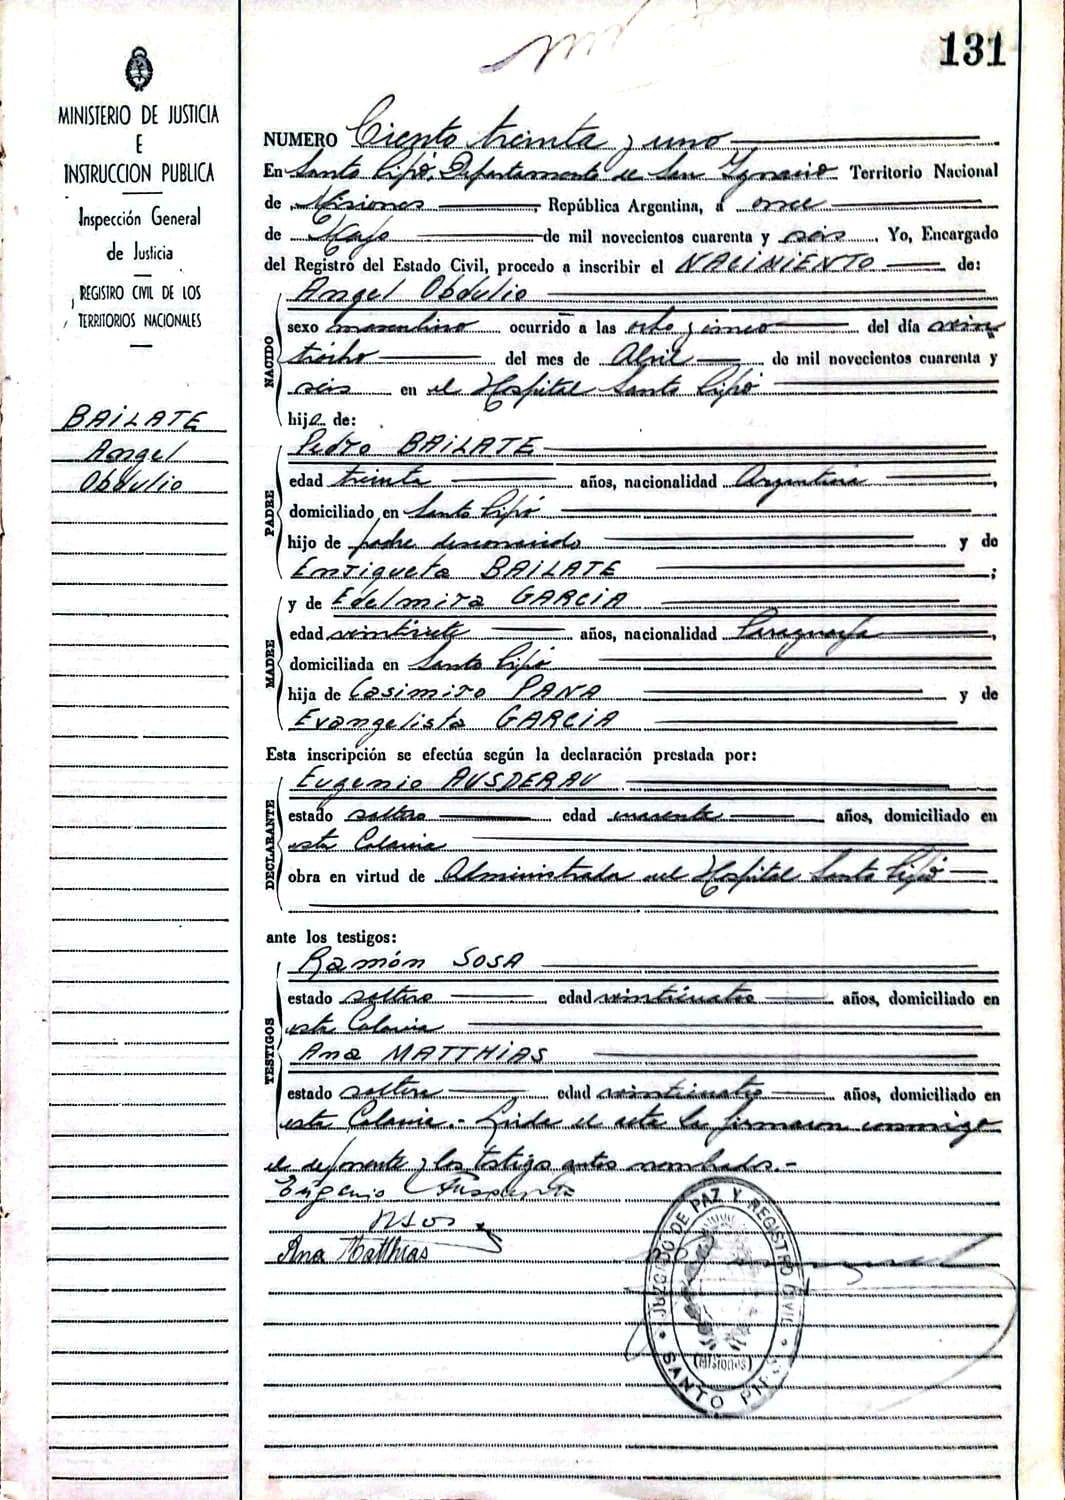 131
MINISTERIO DE JUSTICIA
E
INSTRUCCION PUBLICA
Inspección General
de Justicia
REGISTRO CIVIL DE LOS
TERRITORIOS NACIONALES
BAILATE
Angel
Obdulio
NUMERO Ciento treinta y uno
En Santo Pipó, Departamento de San Ignacio Territorio Nacional
de Misiones, República Argentina, a once
de Mayo de mil novecientos cuarenta y seis. Yo, Encargado
del Registro del Estado Civil, procedo a inscribir el NACIMIENTO de:
NACIDO
Angel Obdulio
sexo masculino ocurrido a las ocho y cinco del día vein
tiocho del mes de Abril de mil novecientos cuarenta y
seis en el Hospital Santo Pipó
hijo de:
PADRE
Pedro BAILATE
edad treinta años, nacionalidad Argentina,
domiciliado en Santo Pipó
hijo de padre desconocido y de
Enriqueta BAILATE;
MADRE
y de Edelmira GARCIA
edad veintisiete años, nacionalidad Paraguaya,
domiciliada en Santo Pipó
hija de Casimiro PANA y de
Evangelista GARCIA
Esta inscripción se efectúa según la declaración prestada por:
DECLARANTE
Eugenio AUSDERAU
estado soltero edad cuarenta años, domiciliado en
esta Colonia
obra en virtud de Administrador del Hospital Santo Pipó
ante los testigos:
TESTIGOS
Ramón SOSA
estado soltero edad veinticuatro años, domiciliado en
esta Colonia
Ana MATTHIAS
estado soltera edad veinticuatro años, domiciliado en
esta Colonia.- Leída el acta la firmaron conmigo
el deponente y los testigos antes nombrados.-
Eugenio
Ana Matthias
JUZGADO DE PAZ Y REGISTRO CIVIL
(MISIONES)
SANTO PIPÓ